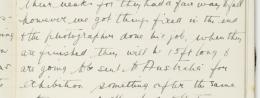 their necks for they had a fair way to fall
however we got things fixed in the end
& the photographer done his job, when they
are finished they will be 15 ft long &
are going to be sent to Australia for
exhibition something after the same